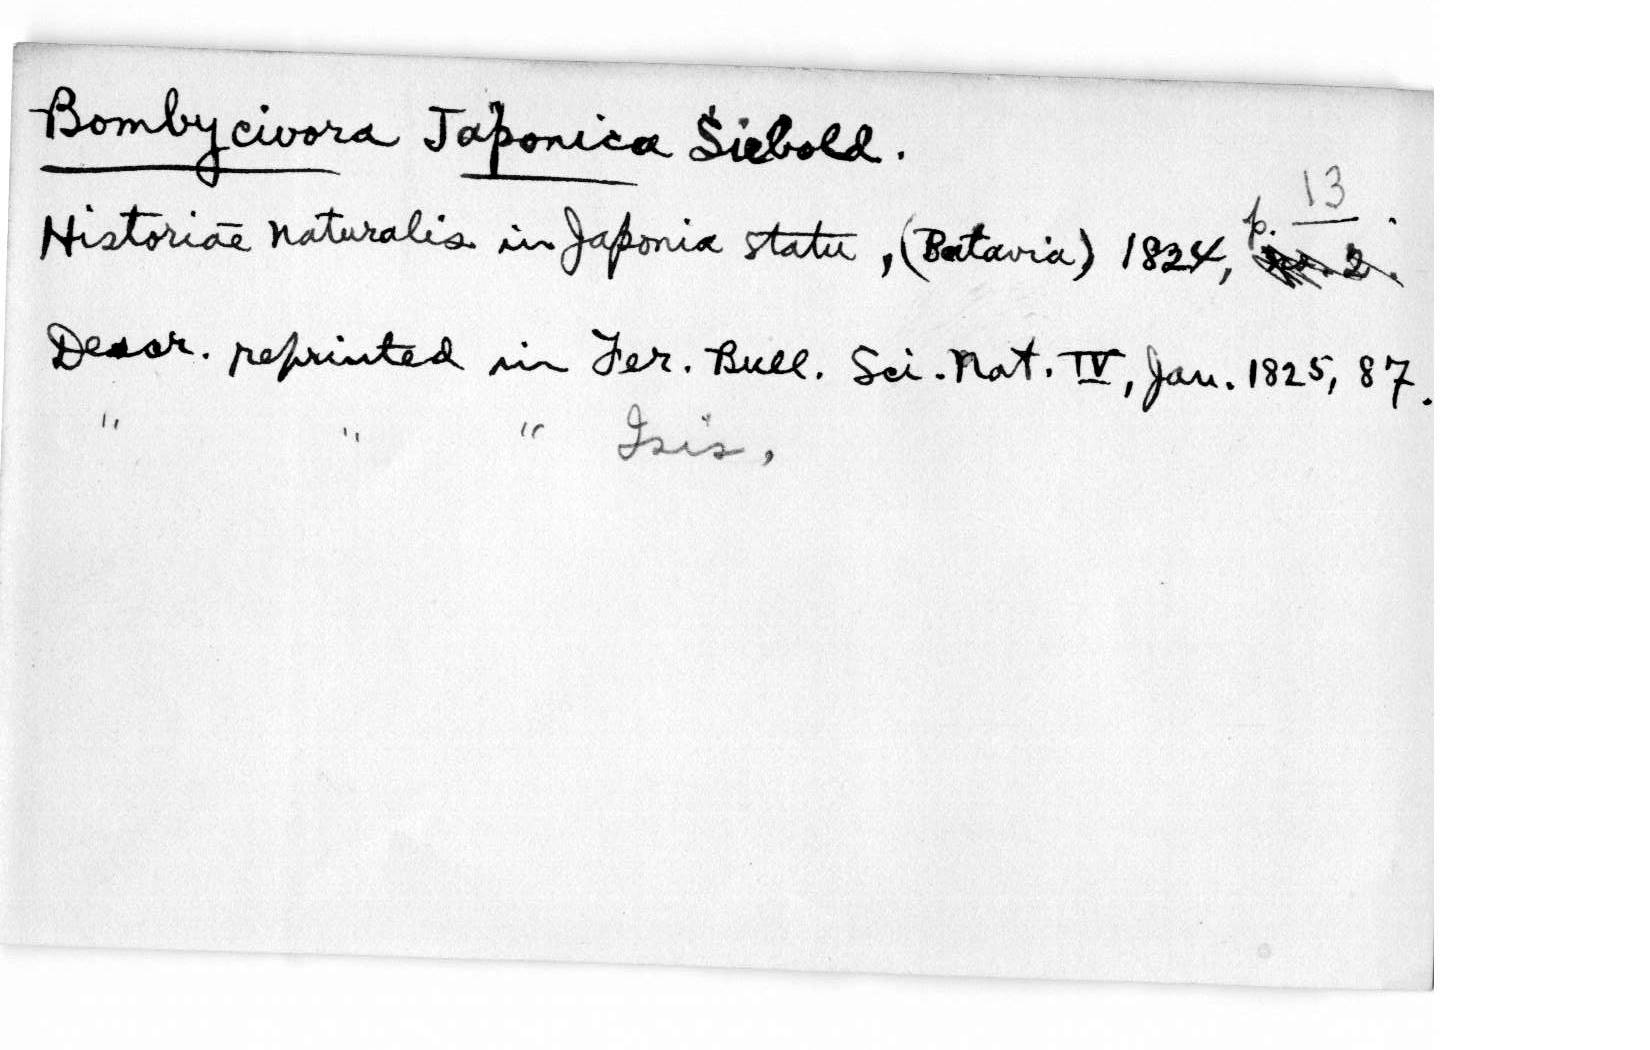 Bombycivora Japonica Siebold.
Historiae naturalis in Japonia statu, (Batavia) 1824, p. 13.
Descr. reprinted in Fer. Bull. Sci. Nat. IV, Jan. 1825, 87.
" " " Isis,